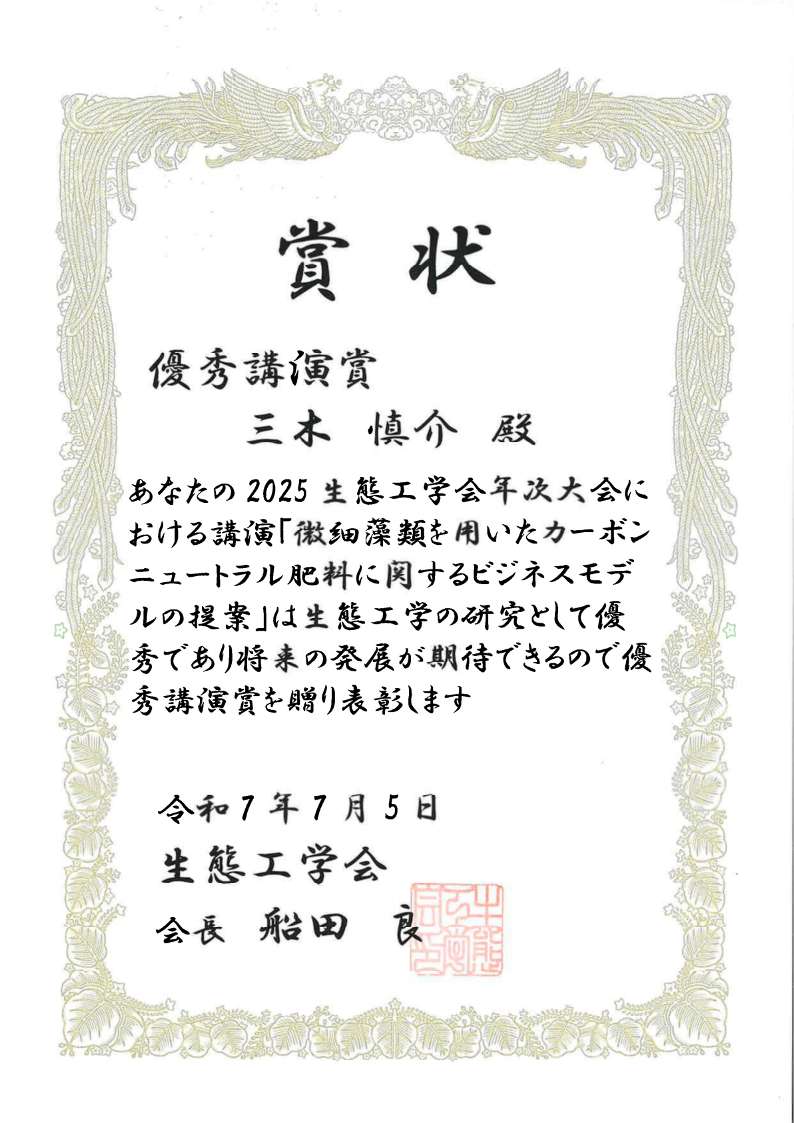 賞状
優秀講演賞
三木 慎介 殿
あなたの2025生態工学会年次大会に
おける講演「微細藻類を用いたカーボン
ニュートラル肥料に関するビジネスモデ
ルの提案」は生態工学の研究として優
秀であり将来の発展が期待できるので優
秀講演賞を贈り表彰します
令和7年7月5日
生態工学会
会長 船田 良